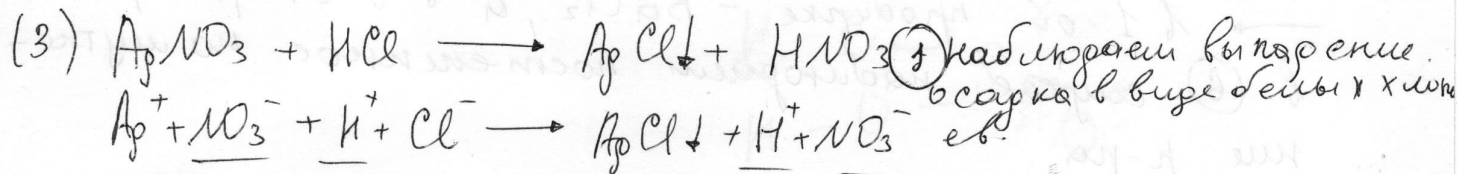 (3) AgNO₃ + HCl ⟶ AgCl↓ + HNO₃ ; наблюдаем выпадение
осадка в виде белых хлопь
Ag⁺ + NO₃⁻ + H⁺ + Cl⁻ ⟶ AgCl↓ + H⁺ + NO₃⁻ ев.